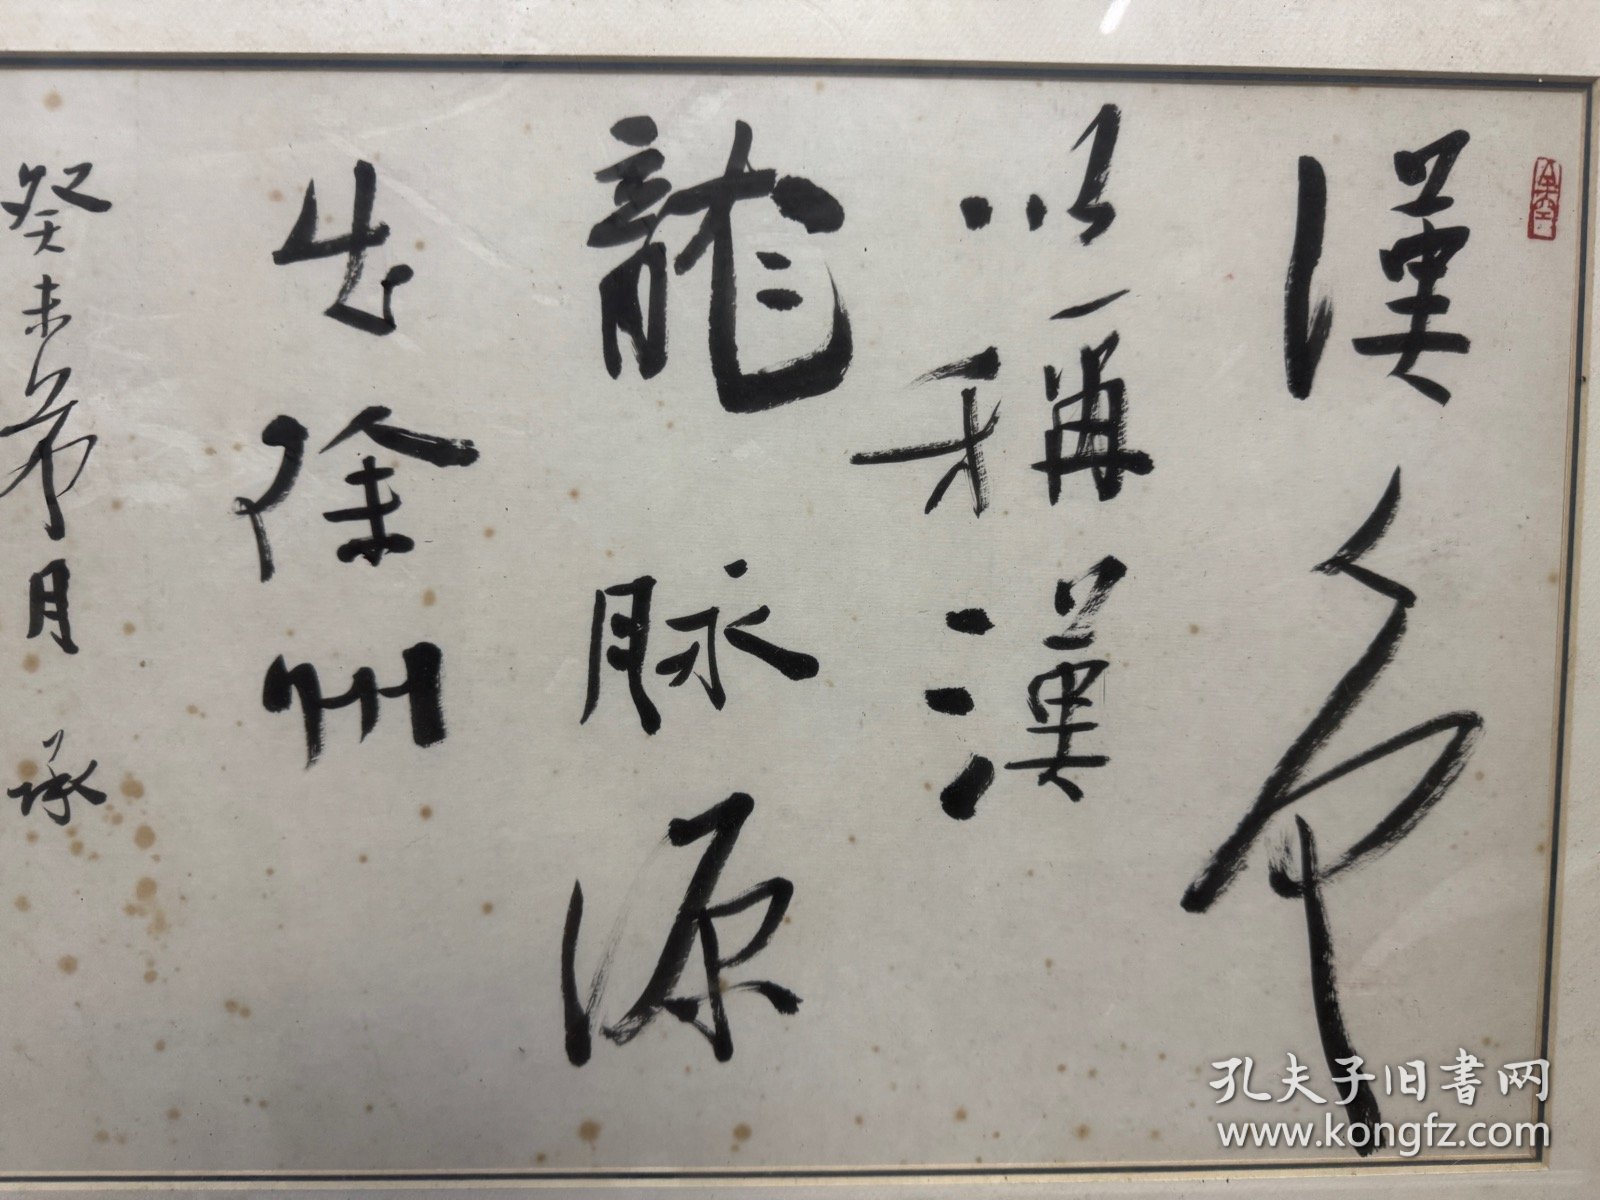 漢
以稱漢
龍脈源
出徐州
癸未 月 承
孔夫子旧书网
www.kongfz.com